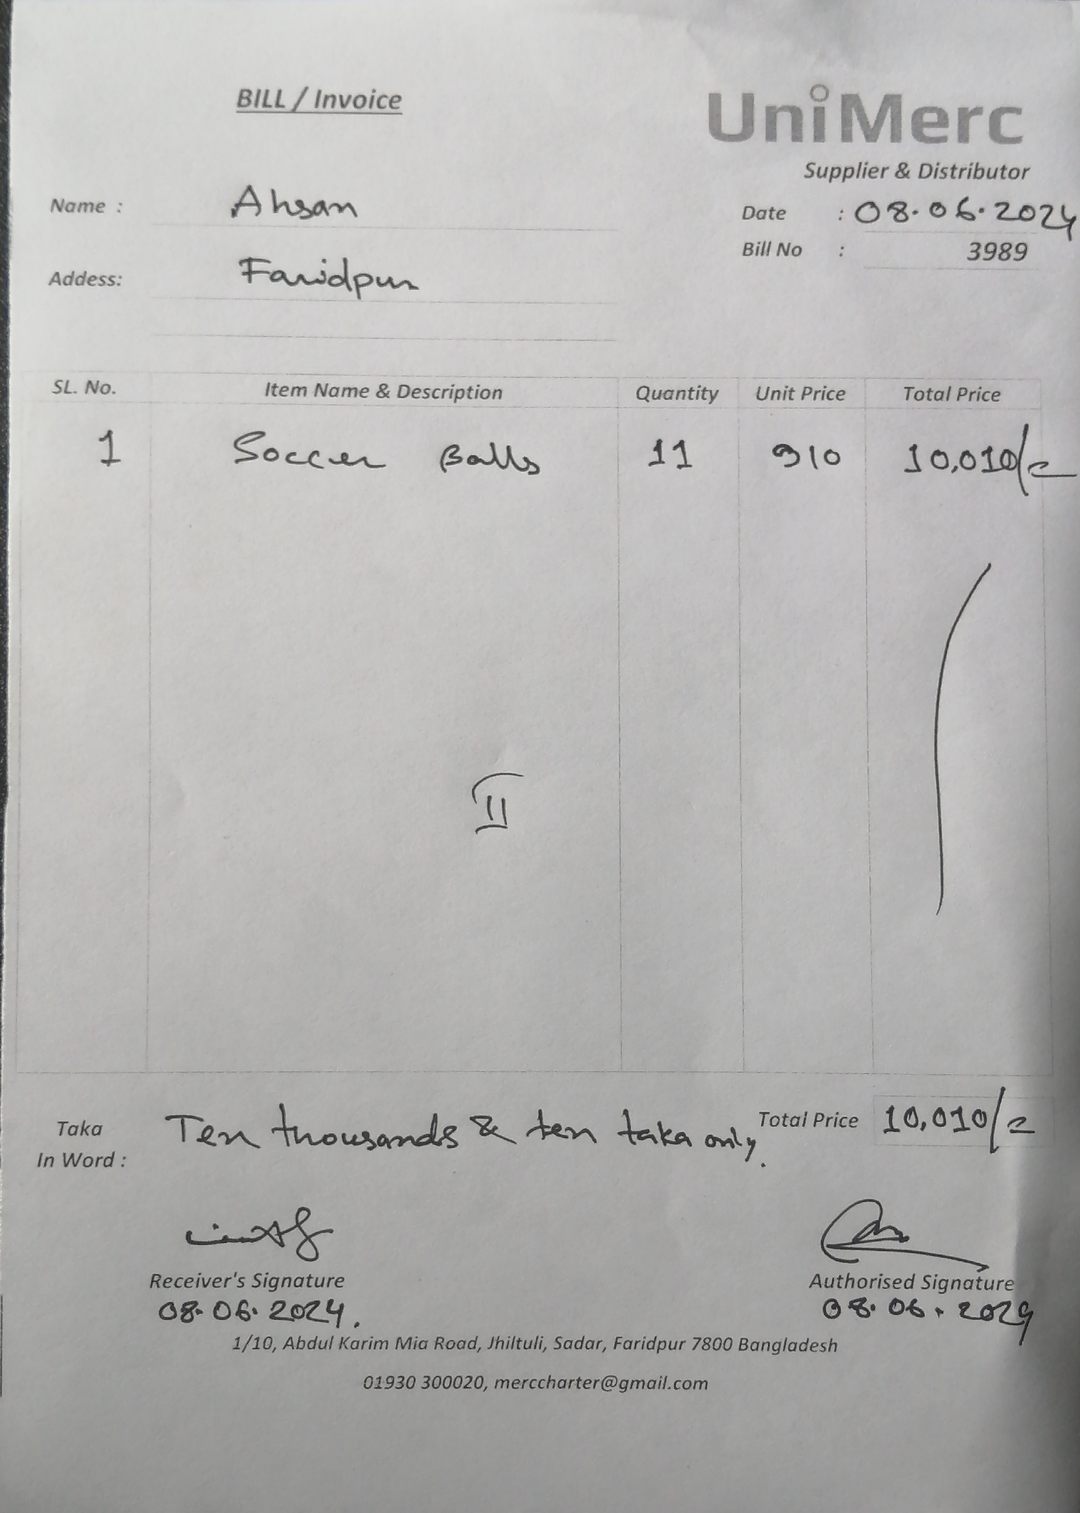 BILL / Invoice
UniMerc
Supplier & Distributor
Name : Ahsan
Date : 08.06.2024
Bill No : 3989
Addess: Faridpur
SL. No. Item Name & Description Quantity Unit Price Total Price
1 Soccer Balls 11 910 10,010/=
Taka In Word : Ten thousands & ten taka only.
Total Price 10,010/=
Receiver's Signature
08.06.2024.
Authorised Signature
08.06.2024
1/10, Abdul Karim Mia Road, Jhiltuli, Sadar, Faridpur 7800 Bangladesh
01930 300020, merccharter@gmail.com